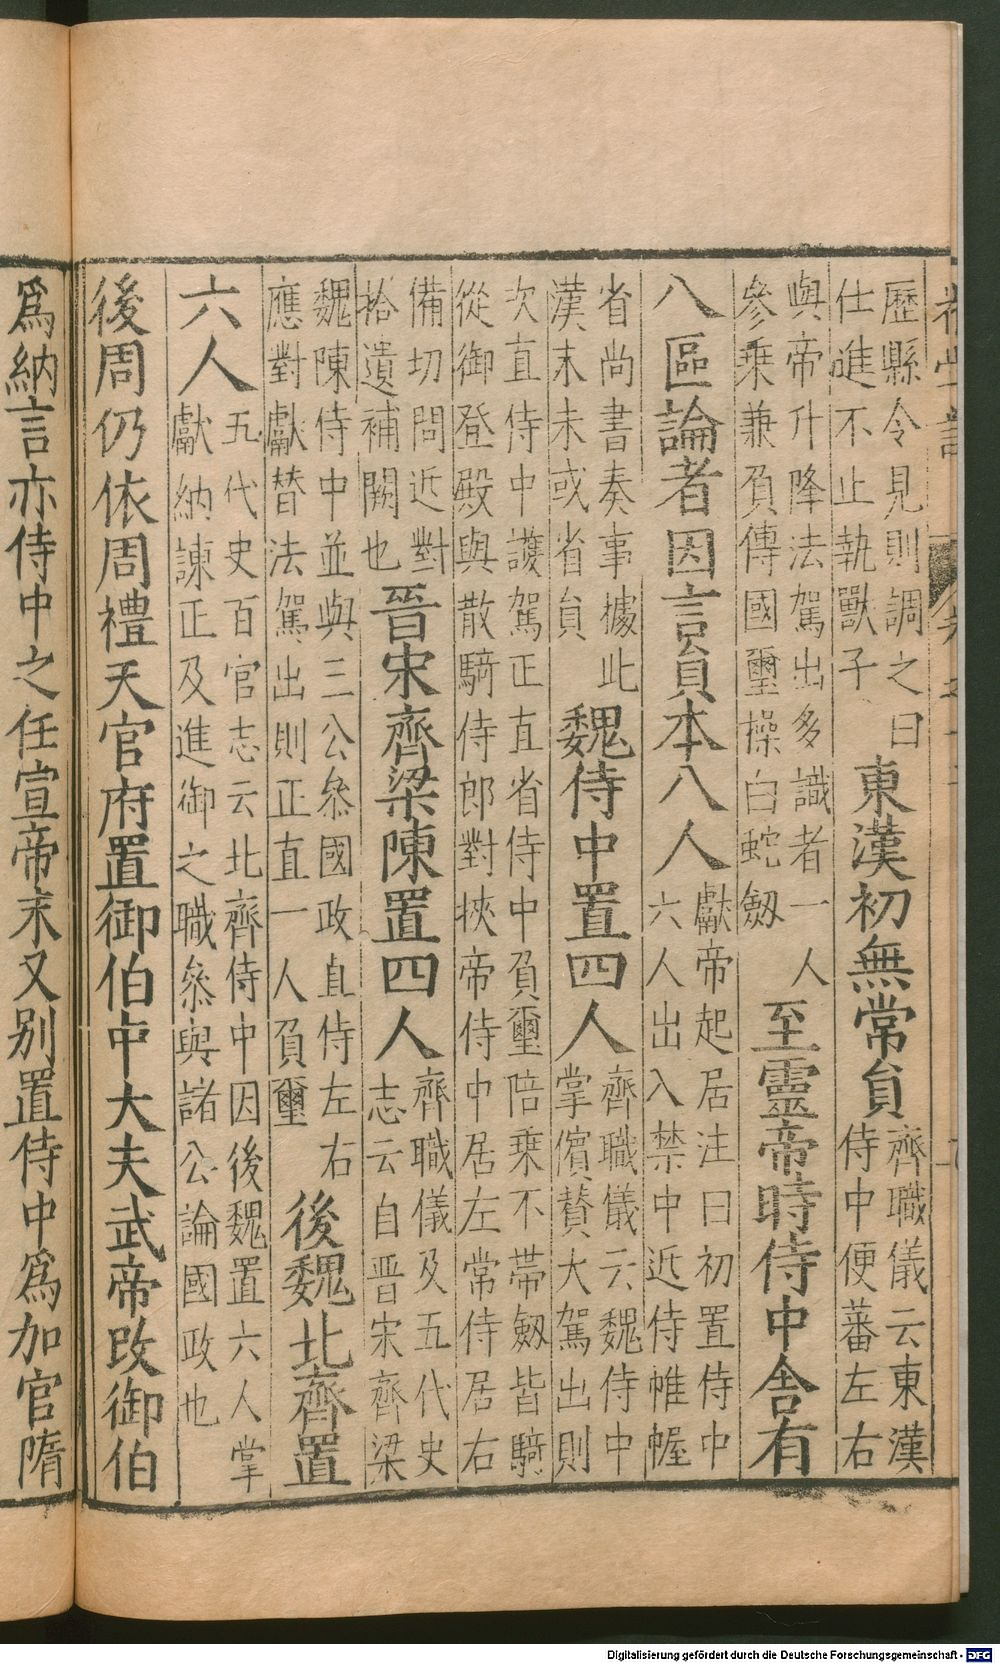 歷縣令見則調之曰
仕進不止執獸子
東漢初無常貟
齊職儀云東漢
侍中便蕃左右
與帝升降法駕出多識者一人
參乗兼負傳國璽操白蛇劔
至靈帝時侍中舍有
八區論者因言貟本八人
獻帝起居注曰初置侍中
六人出入禁中近侍帷幄
省尚書奏事據此
漢末未或省貟
魏侍中置四人
齊職儀云魏侍中
掌儐賛大駕出則
次直侍中護駕正直省侍中負璽陪乗不帶劔皆騎
從御登殿與散騎侍郎對挾帝侍中居左常侍居右
備切問近對
拾遺補闕也
晉宋齊梁陳置四人
齊職儀及五代史
志云自晋宋齊梁
魏陳侍中並與三公叅國政直侍左右
應對獻替法駕出則正直一人負璽
後魏北齊置
六人
五代史百官志云北齊侍中因後魏置六人掌
獻納諫正及進御之職叅與諸公論國政也
後周仍依周禮天官府置御伯中大夫武帝改御伯
爲納言亦侍中之任宣帝末又别置侍中爲加官隋
Digitalisierung gefördert durch die Deutsche Forschungsgemeinschaft - DFG